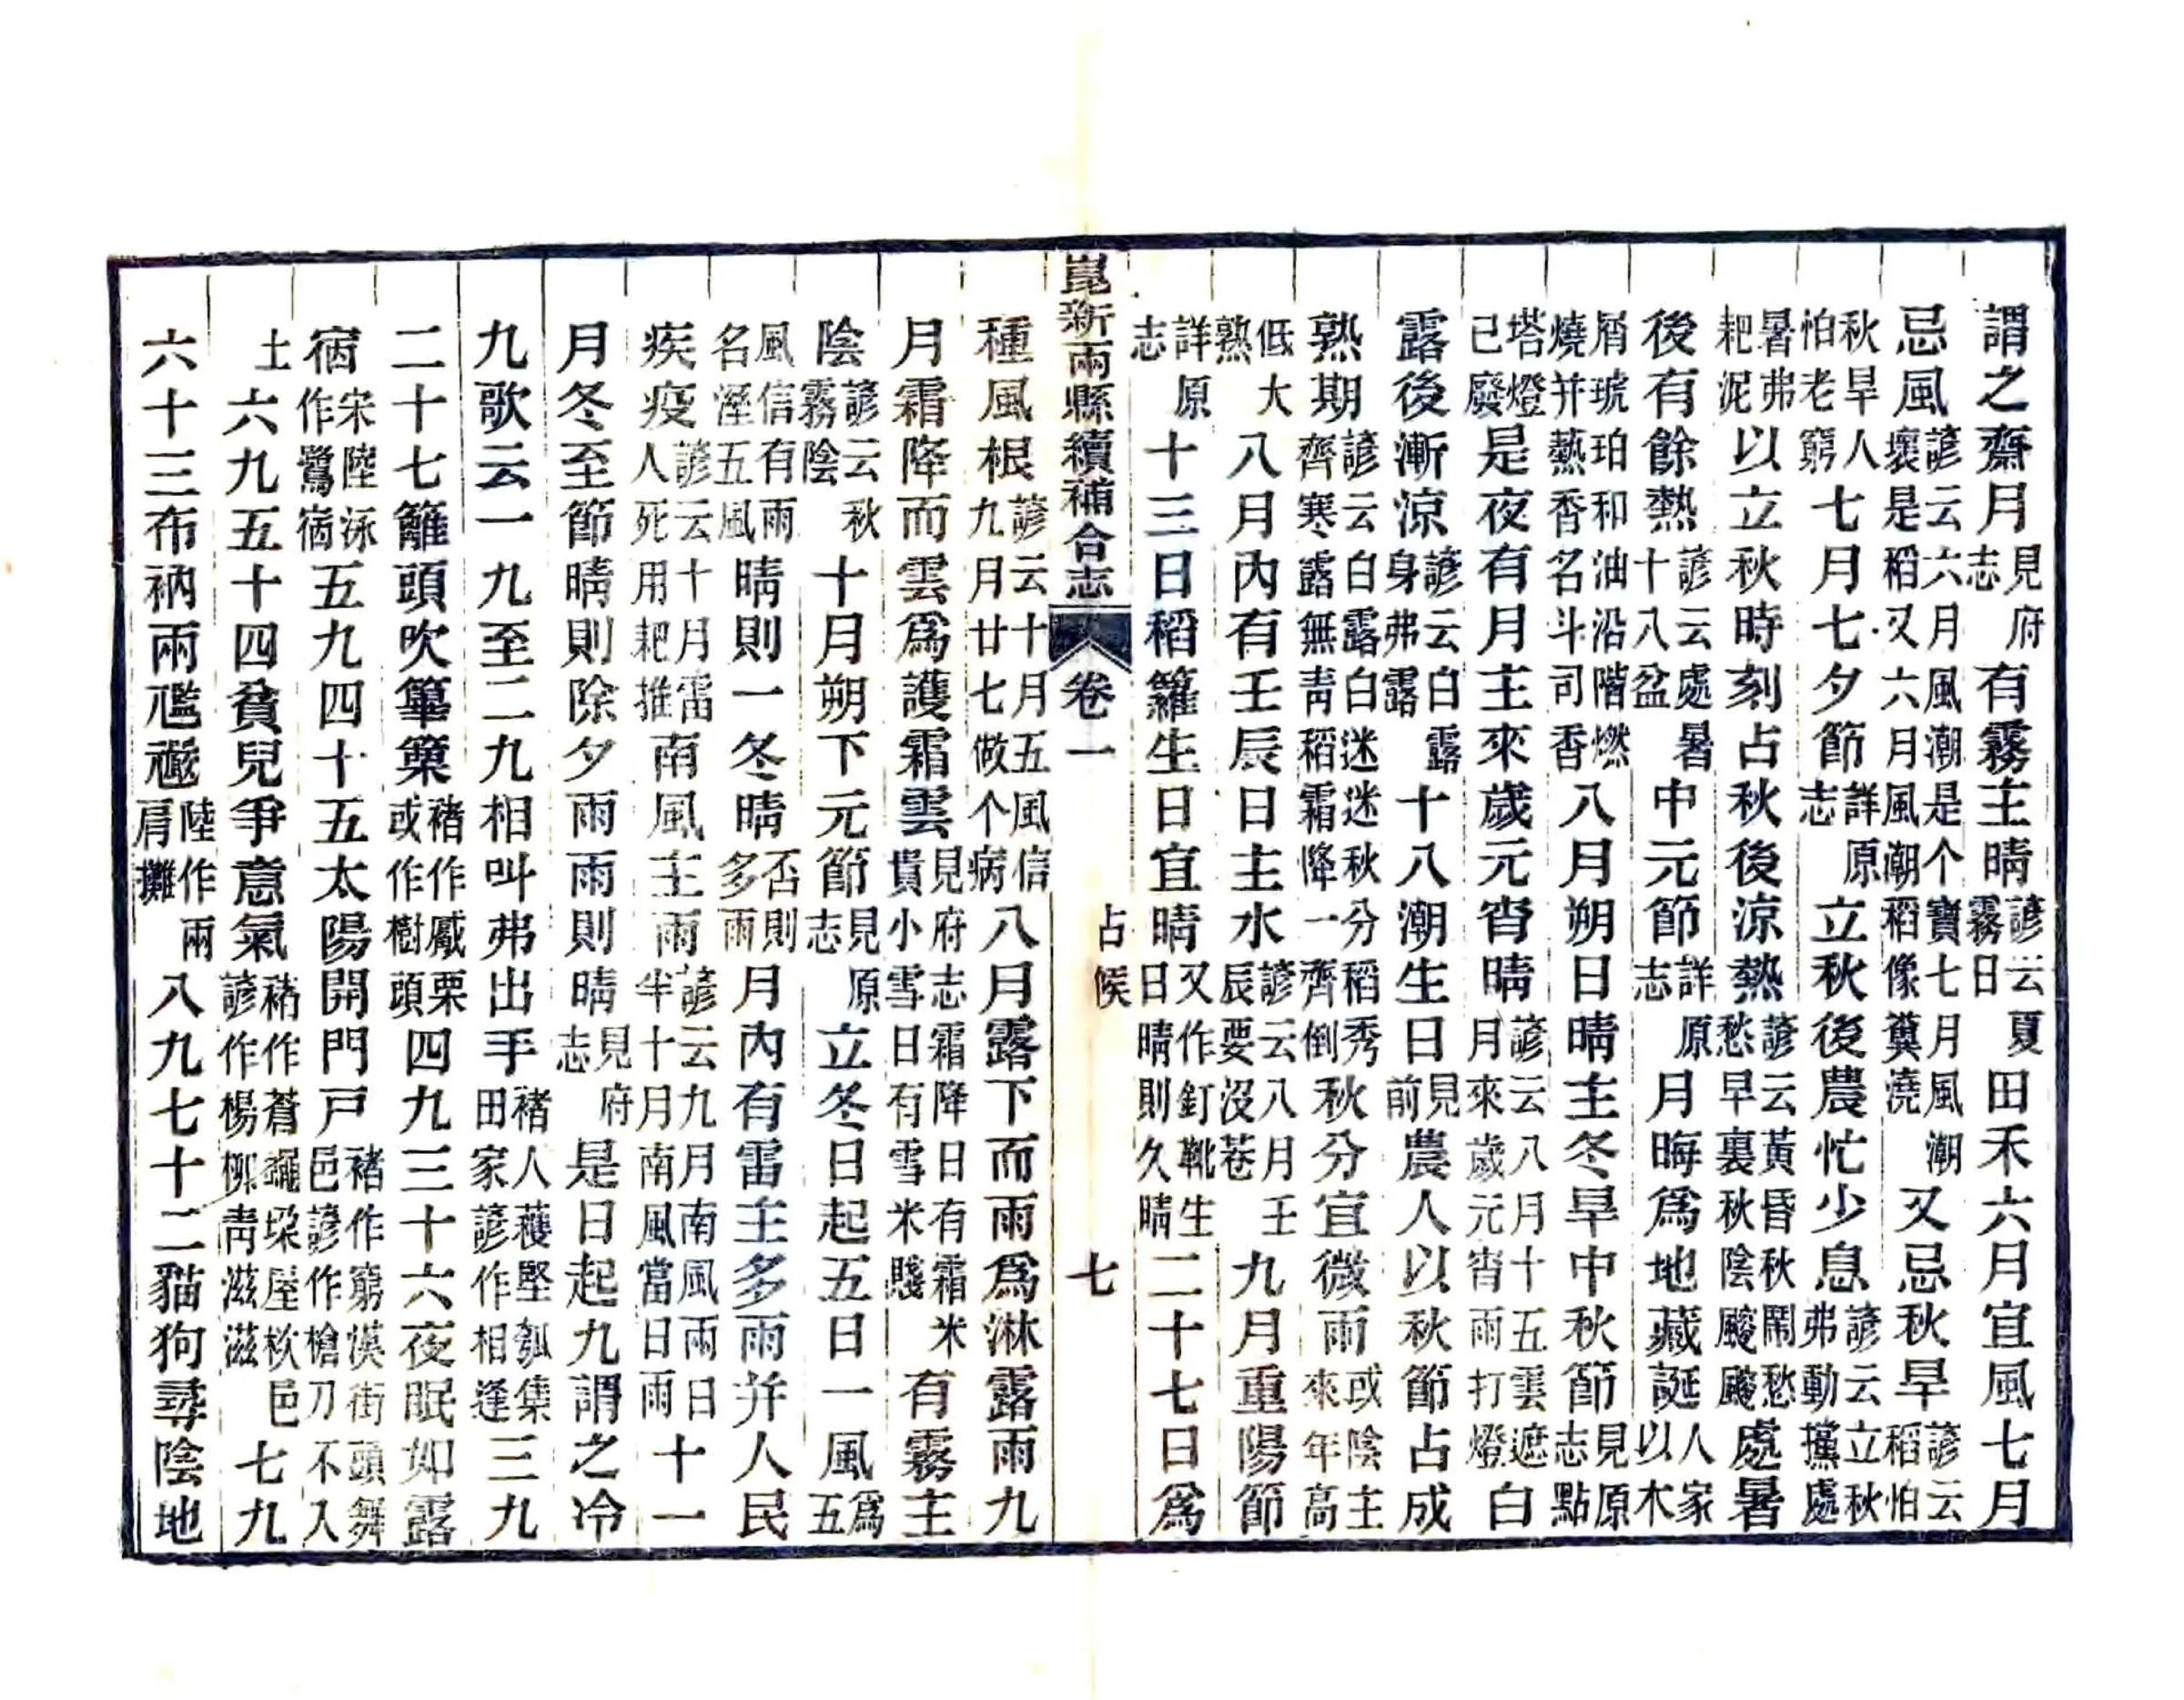 謂之齋月見府志有霧主晴諺云夏霧日田禾六月宜風七月
忌風諺云六月風潮是个寶七月風潮壞是稻又六月風潮稻像糞澆又忌秋旱諺云稻怕
秋旱人怕老窮七月七夕節詳原志立秋後農忙少息諺云立秋弗動攩處
暑弗耙泥以立秋時刻占秋後涼熱諺云黃昏秋鬧愁愁早裏秋陰颼颼處暑
後有餘熱諺云處暑十八盆中元節詳原志月晦爲地藏誕人家以木
屑琥珀和油沿階燃燒并爇香名斗司香八月朔日晴主冬旱中秋節見原志點
塔燈已廢是夜有月主來歲元宵晴諺云八月十五雲遮月來歲元宵雨打燈白
露後漸涼諺云白露身弗露十八潮生日見前農人以秋節占成
熟期諺云白露白迷迷秋分稻秀齊寒露無靑稻霜降一齊倒秋分宜微雨或陰主來年高
低大熟八月內有壬辰日主水諺云八月壬辰要沒菴九月重陽節
詳原志十三日稻籮生日宜晴又作釘靴生日晴則久晴二十七日爲
崑新兩縣續補合志 卷一 占候 七
種風根諺云十月五風信九月廿七做个病八月露下而雨爲淋露雨九
月霜降而雲爲護霜雲見府志霜降日有霜米貴小雪日有雪米賤有霧主
陰諺云秋霧陰陰十月朔下元節見原志立冬日起五日一風爲五
風信有雨名溼五風晴則一冬晴否則多雨月內有雷主多雨幷人民
疾疫諺云十月雷人死用耙推南風主雨諺云九月南風兩日半十月南風當日雨十一
月冬至節晴則除夕雨雨則晴見府志是日起九謂之冷
九歌云一九至二九相叫弗出手褚人穫堅瓠集田家諺作相逢三九
二十七籬頭吹篳篥褚作觱栗或作樹頭四九三十六夜眠如露
宿宋陸泳作鷺宿五九四十五太陽開門戸褚作窮漢街頭舞邑諺作槍刀不入
土六九五十四貧兒爭意氣褚作蒼蠅垜屋栨邑諺作楊柳靑滋滋七九
六十三布衲兩㩜襹陸作兩肩攤八九七十二貓狗尋陰地